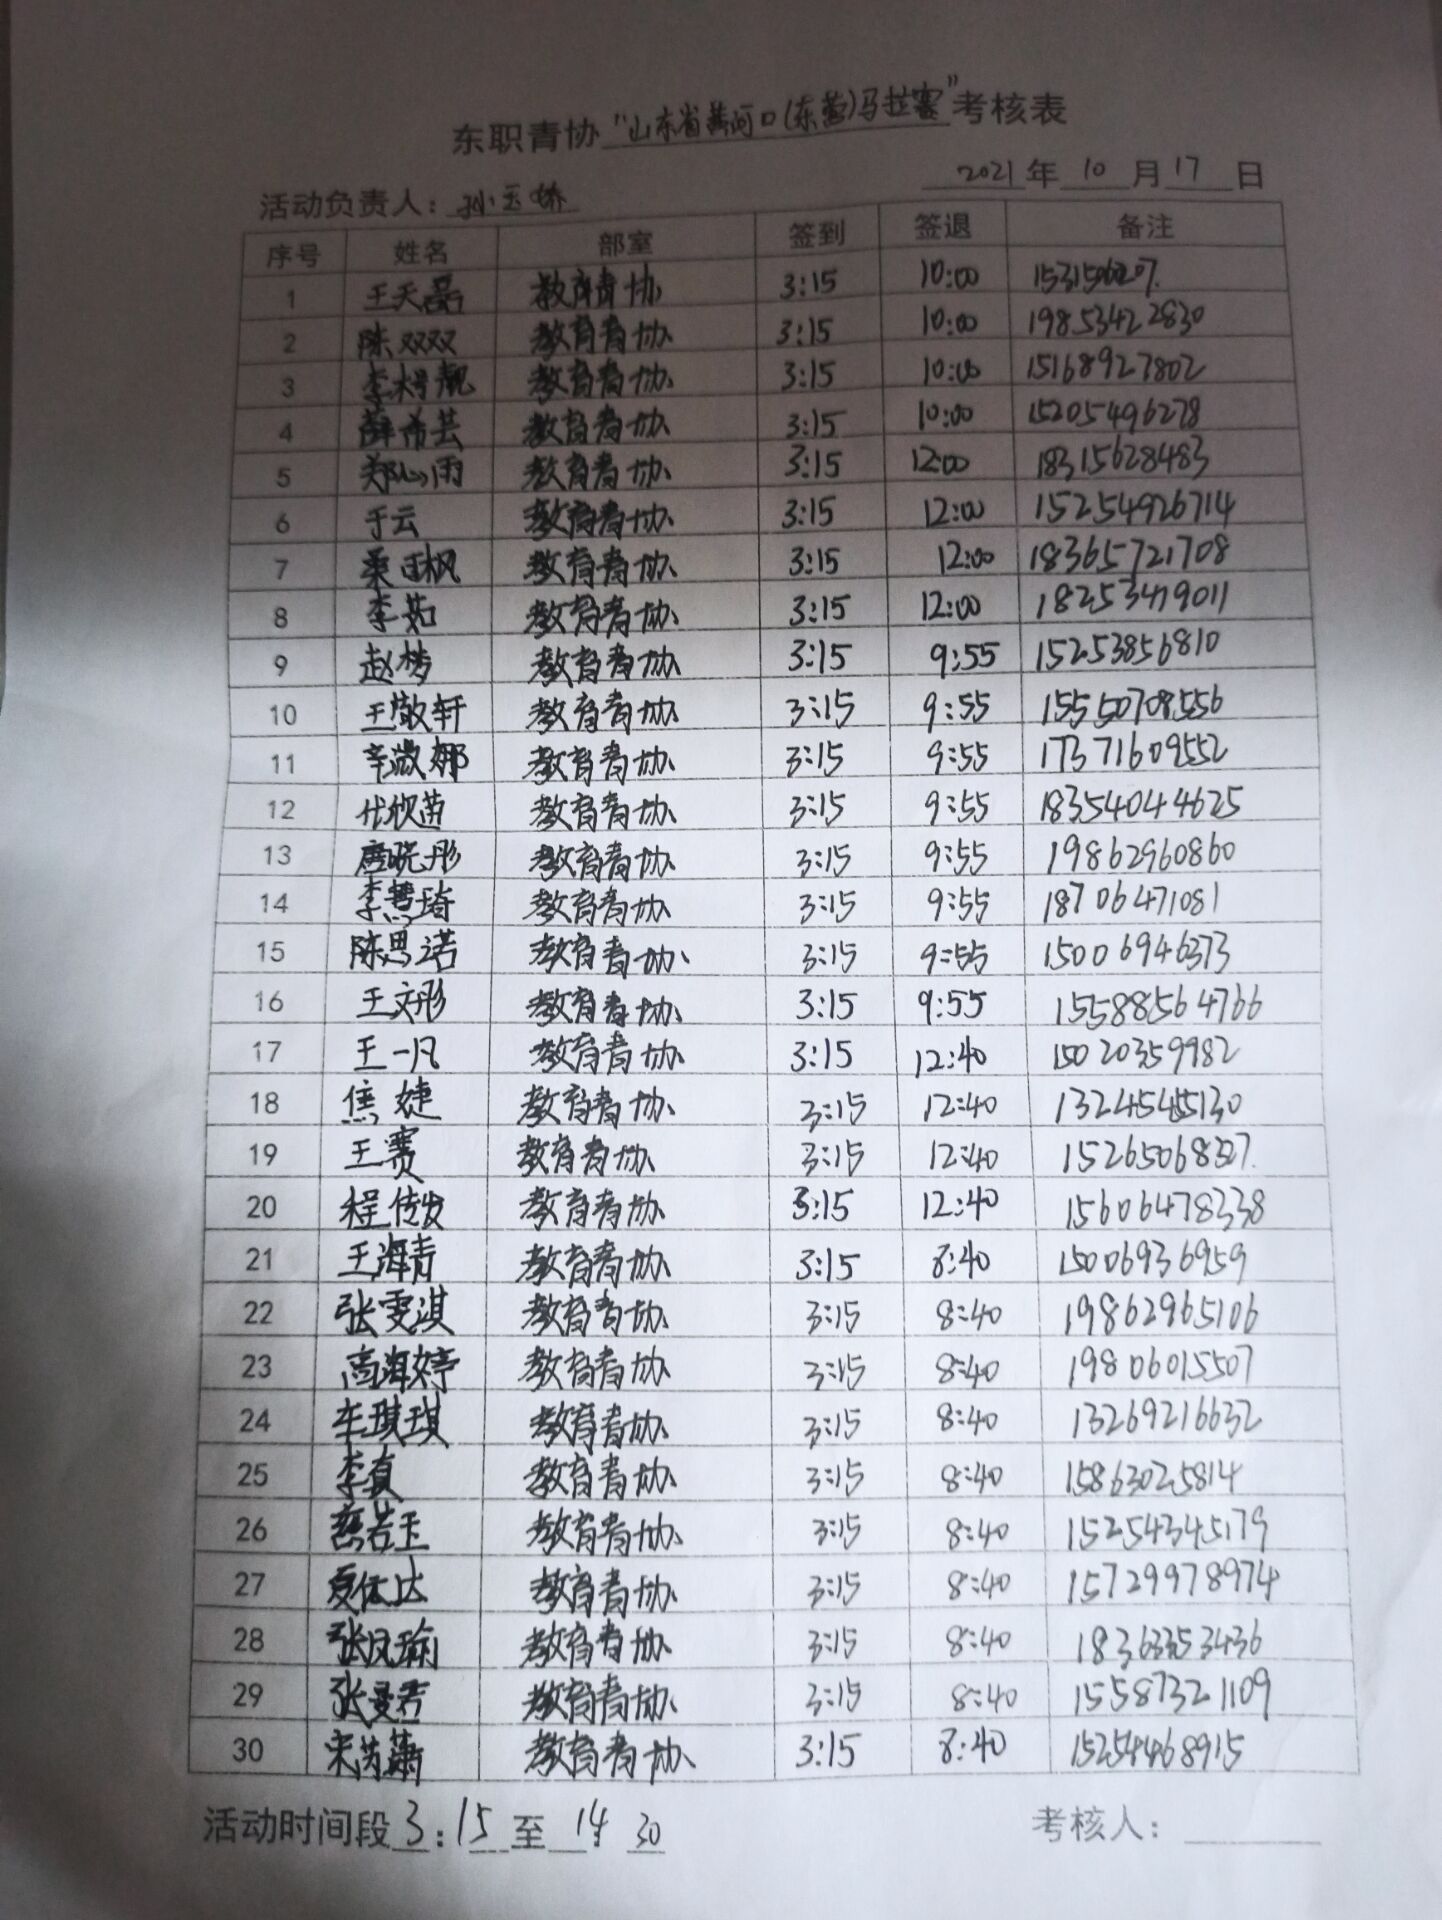 东职青协"山东省黄河口(东营)马拉塞"考核表
2021年10月17日
活动负责人：孙玉娇
序号 姓名 部室 签到 签退 备注
1 王天磊 教育青协 3:15 10:00
2 陈双双 教育青协 3:15 10:00 19853422830
3 李梓靓 教育青协 3:15 10:00 15168927802
4 薛希芸 教育青协 3:15 10:00 15205496278
5 郑心雨 教育青协 3:15 12:00 18315628483
6 于云 教育青协 3:15 12:00 15254926714
7 桑田枫 教育青协 3:15 12:00 18365721708
8 李茹 教育青协 3:15 12:00 18253479011
9 赵梦 教育青协 3:15 9:55 15253856810
10 王敬轩 教育青协 3:15 9:55 15550708556
11 辛淑娜 教育青协 3:15 9:55 17371609552
12 代欣苗 教育青协 3:15 9:55 18354044625
13 唐晓彤 教育青协 3:15 9:55 19862960860
14 李慧琦 教育青协 3:15 9:55 18706471081
15 陈思诺 教育青协 3:15 9:55 15006946373
16 王文彤 教育青协 3:15 9:55 15588564766
17 王一凡 教育青协 3:15 12:40 15020359982
18 焦婕 教育青协 3:15 12:40
19 王赛 教育青协 3:15 12:40 15265068327
20 程传发 教育青协 3:15 12:40 15606478338
21 王海青 教育青协 3:15 8:40 15006936959
22 张雯淇 教育青协 3:15 8:40 19862965106
23 高海婷 教育青协 3:15 8:40 19806015507
24 车琪琪 教育青协 3:15 8:40 13269216632
25 李真 教育青协 3:15 8:40 15863025814
26 燕若玉 教育青协 3:15 8:40 15254345179
27 教育青协 3:15 8:40 15729978974
28 张凤瑜 教育青协 3:15 8:40 18363353436
29 张曼君 教育青协 3:15 8:40 15587321109
30 宋芮萧 教育青协 3:15 8:40 15254468915
活动时间段3:15至14 30 考核人：